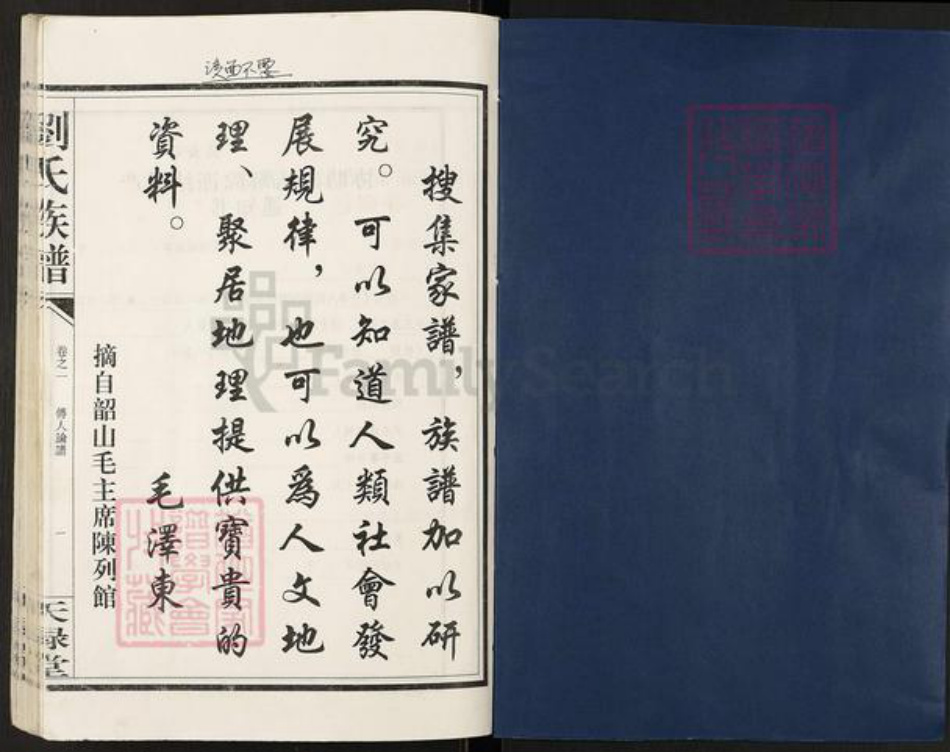 搜集家譜，族譜加以研
究。可以知道人類社會發
展規律，也可以爲人文地
理、聚居地理提供寶貴的
資料。
毛澤東
摘自韶山毛主席陳列館
劉氏族譜
卷之一
傳人論譜
一
天祿堂
FamilySearch